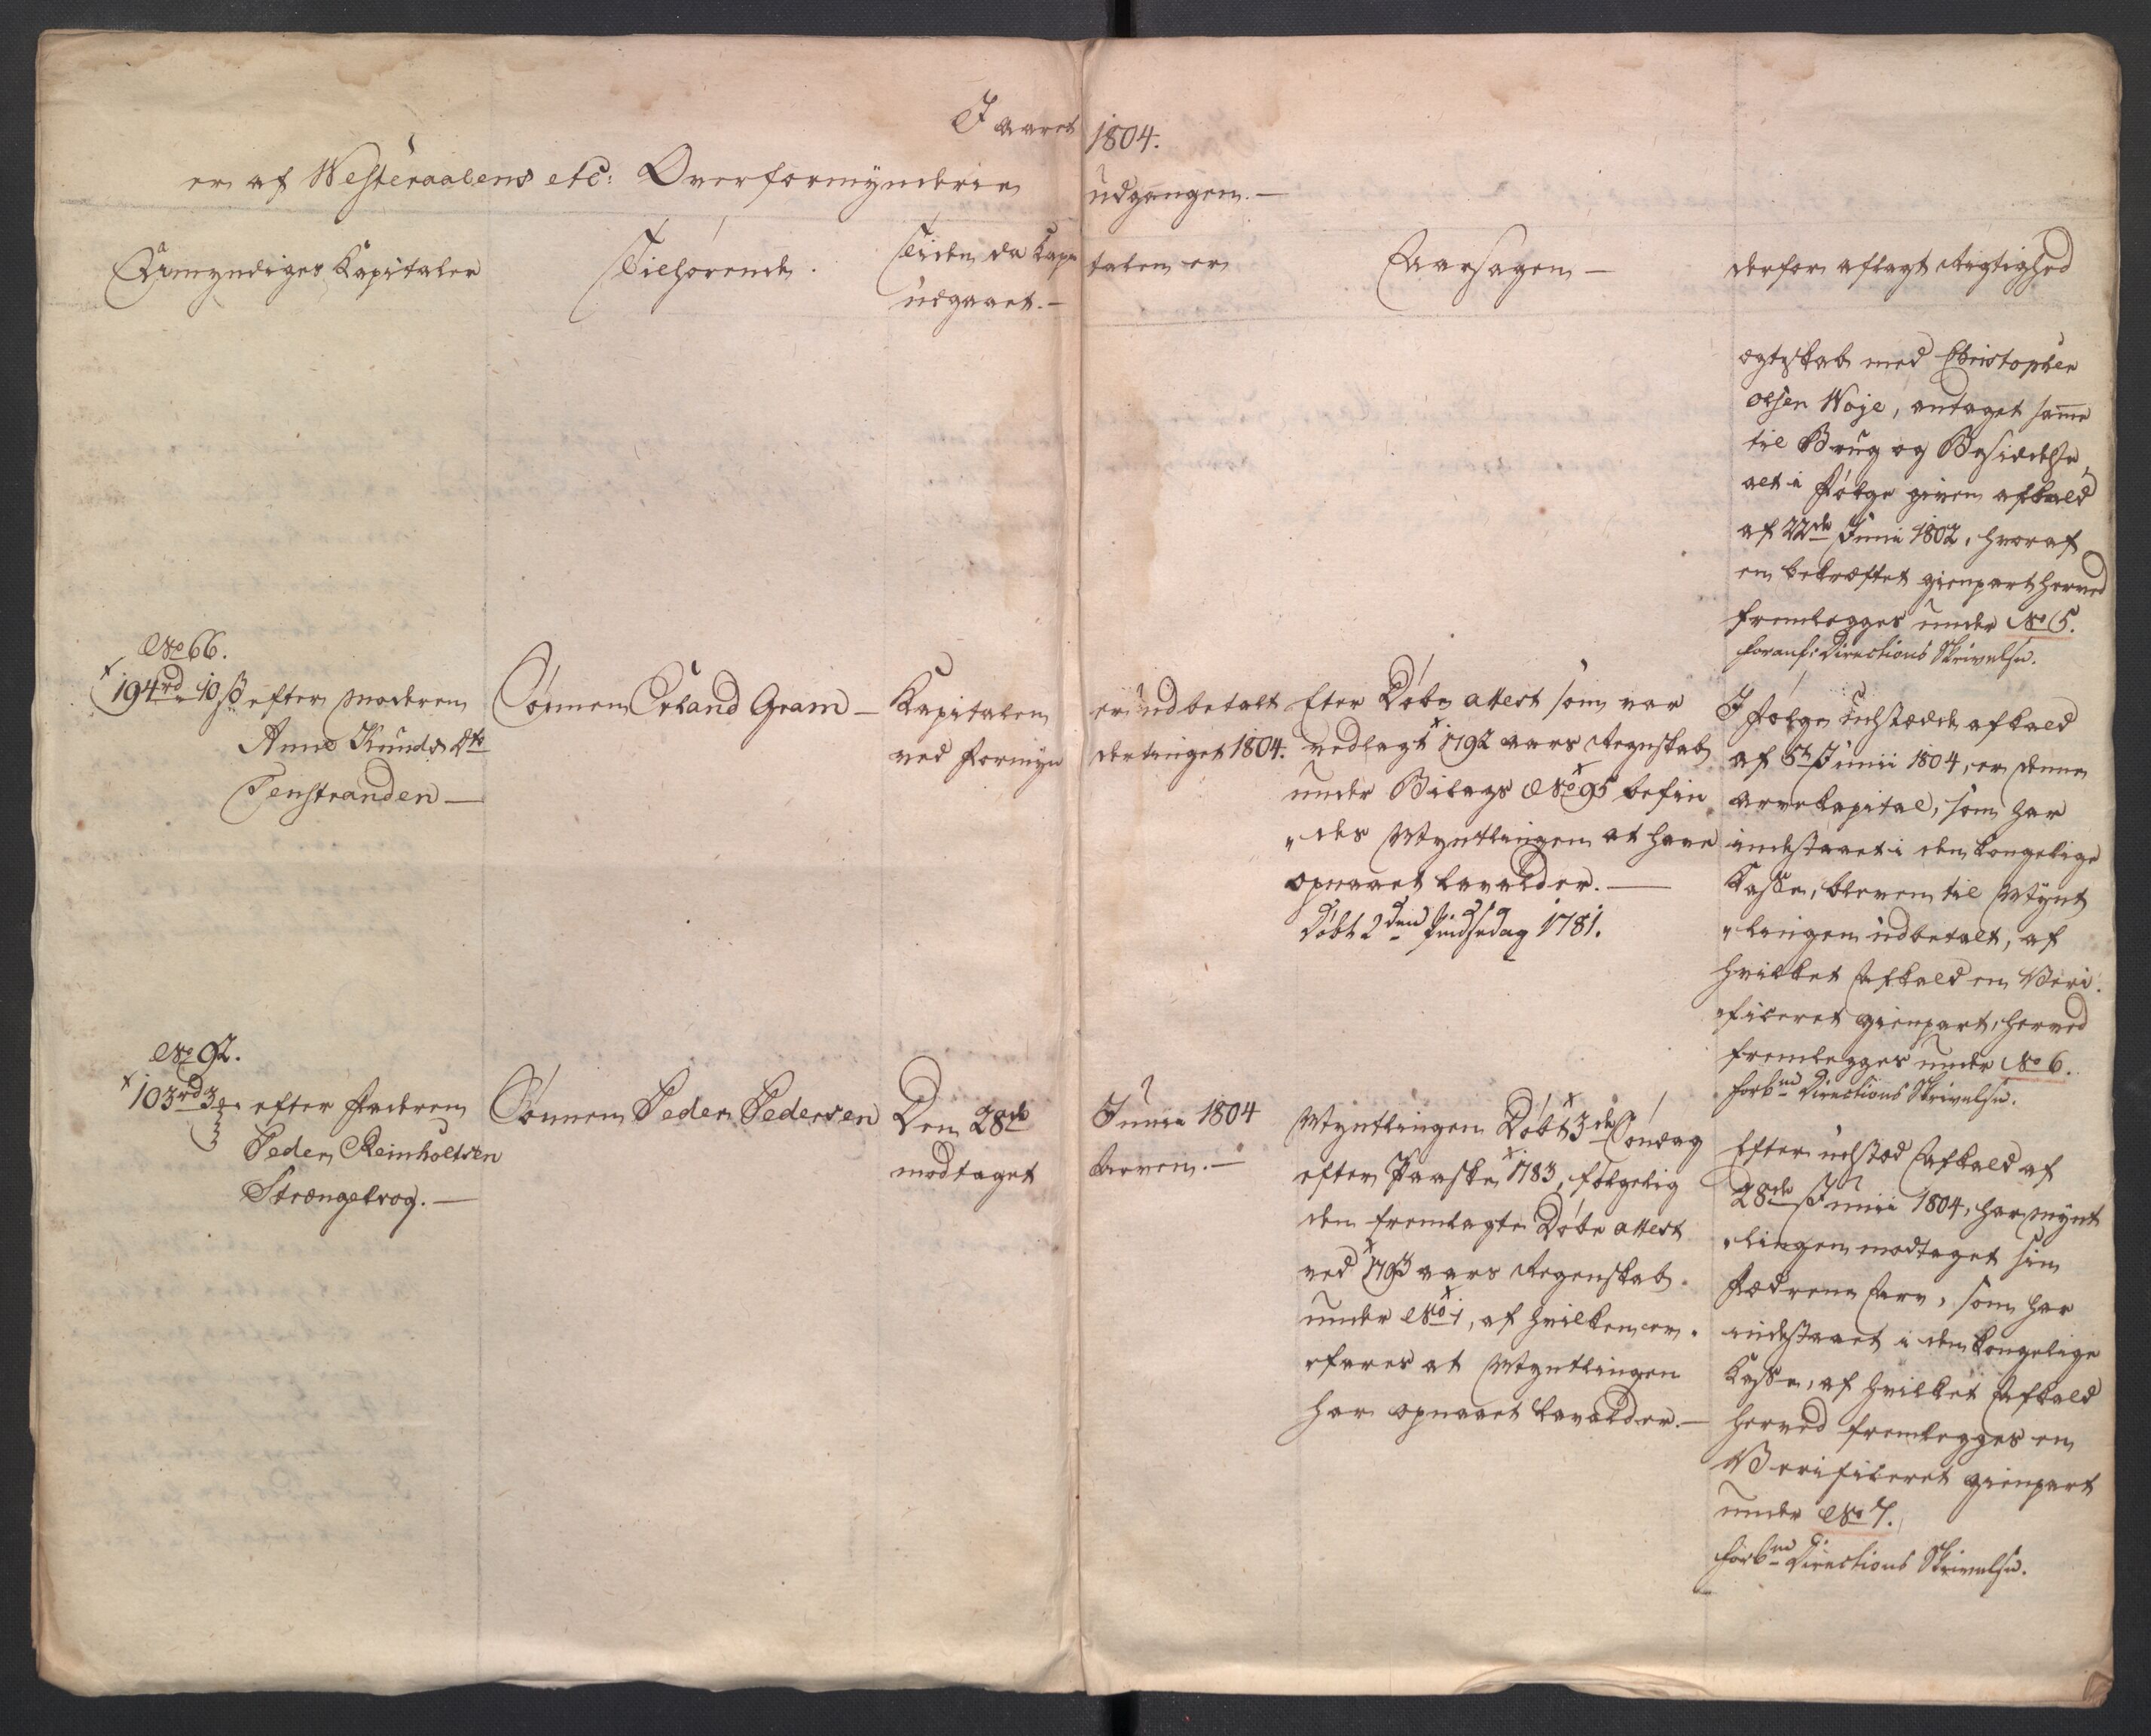 I aaret 1804.
er af Westeraalens etc: Overformynderie udgangen. —
Umyndiges Kapitaler
Tilhørende.
Tiden da Kapi
talen er
udgaaet. —
Aarsagen —
derfor aflagt Rigtighed
ægteskab med Christopher
olsen Woje, antaget samme
til Brug og Besiddelse,
alt i Følge given afkald
af 22de Junii 1802, hvoraf
en bekræftet gienpart herved
fremlegges under No 5.
foranf: Directions Skrivelse.
No 66.
194rd 10 ß efter Moderen
Anne Knuds Dtr
Tenstranden —
Sønnen Erland Gram —
Kapitalen
er udbetalt
ved Formyn
dertinget 1804.
Efter Døbe attest som var
vedlagt 1792 aars Regnskab
under Bilags No 95 befin
„des Myntlingen at have
opnaaet lavalder. —
Døbt 2den Pindsedag 1781.
I Følge udstædde afkald
af 5te Junii 1804, er denne
arvekapital, som har
indestaaet i den kongelige
Kasse, bleven til Mynt
„lingen udbetalt, af
hvilket Afkald en Veri
„ficeret gienpart, herved
fremlegges under No 6.
forbne Directions Skrivelse.
No 92.
103rd 3 efter Faderen
Peder Reinholtsen
Strængelvog. —
Sønnen Peder Pedersen
Den 28de
Junii 1804
modtaget
Arven. —
Myntlingen Døbt 3de Søndag
efter Paaske 1783, følgelig
den fremlagte Døbe attest
ved 1793 aars Regenskab
under No 1, af hvilken er„
„fares at Myntlingen
har opnaaet lavalder. —
Efter udstæd Afkald af
28de Junii 1804, har Mynt
„lingen modtaget sin
Fædrene Arv, som har
indestaaet i den kongelige
Kasse, af hvilket Afkald
herved fremlegges en
Verificeret gienpart
under No 7.
forbne Directions Skrivelse.